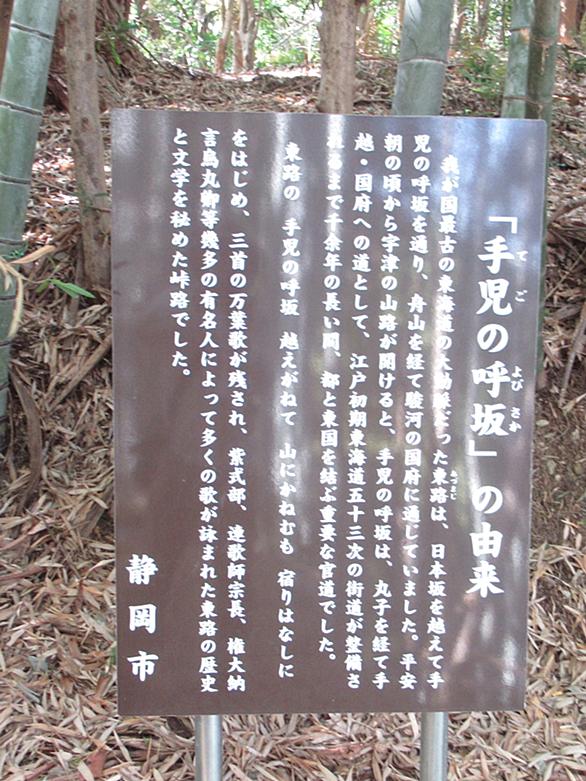 「手児の呼坂」の由来
てご よびさか
我が国最古の東海道の大動脈だった東路は、日本坂を越えて手
あづまじ
児の呼坂を通り、舟山を経て駿河の国府に通じていました。平安
朝の頃から宇津の山路が開けると、手児の呼坂は、丸子を経て手
越・国府への道として、江戸初期東海道五十三次の街道が整備さ
れるまで千余年の長い間、都と東国を結ぶ重要な官道でした。
東路の 手児の呼坂 越えがねて 山にかねむも 宿りはなしに
をはじめ、三首の万葉歌が残され、紫式部、連歌師宗長、権大納
言烏丸卿等幾多の有名人によって多くの歌が詠まれた東路の歴史
と文学を秘めた峠路でした。
静岡市